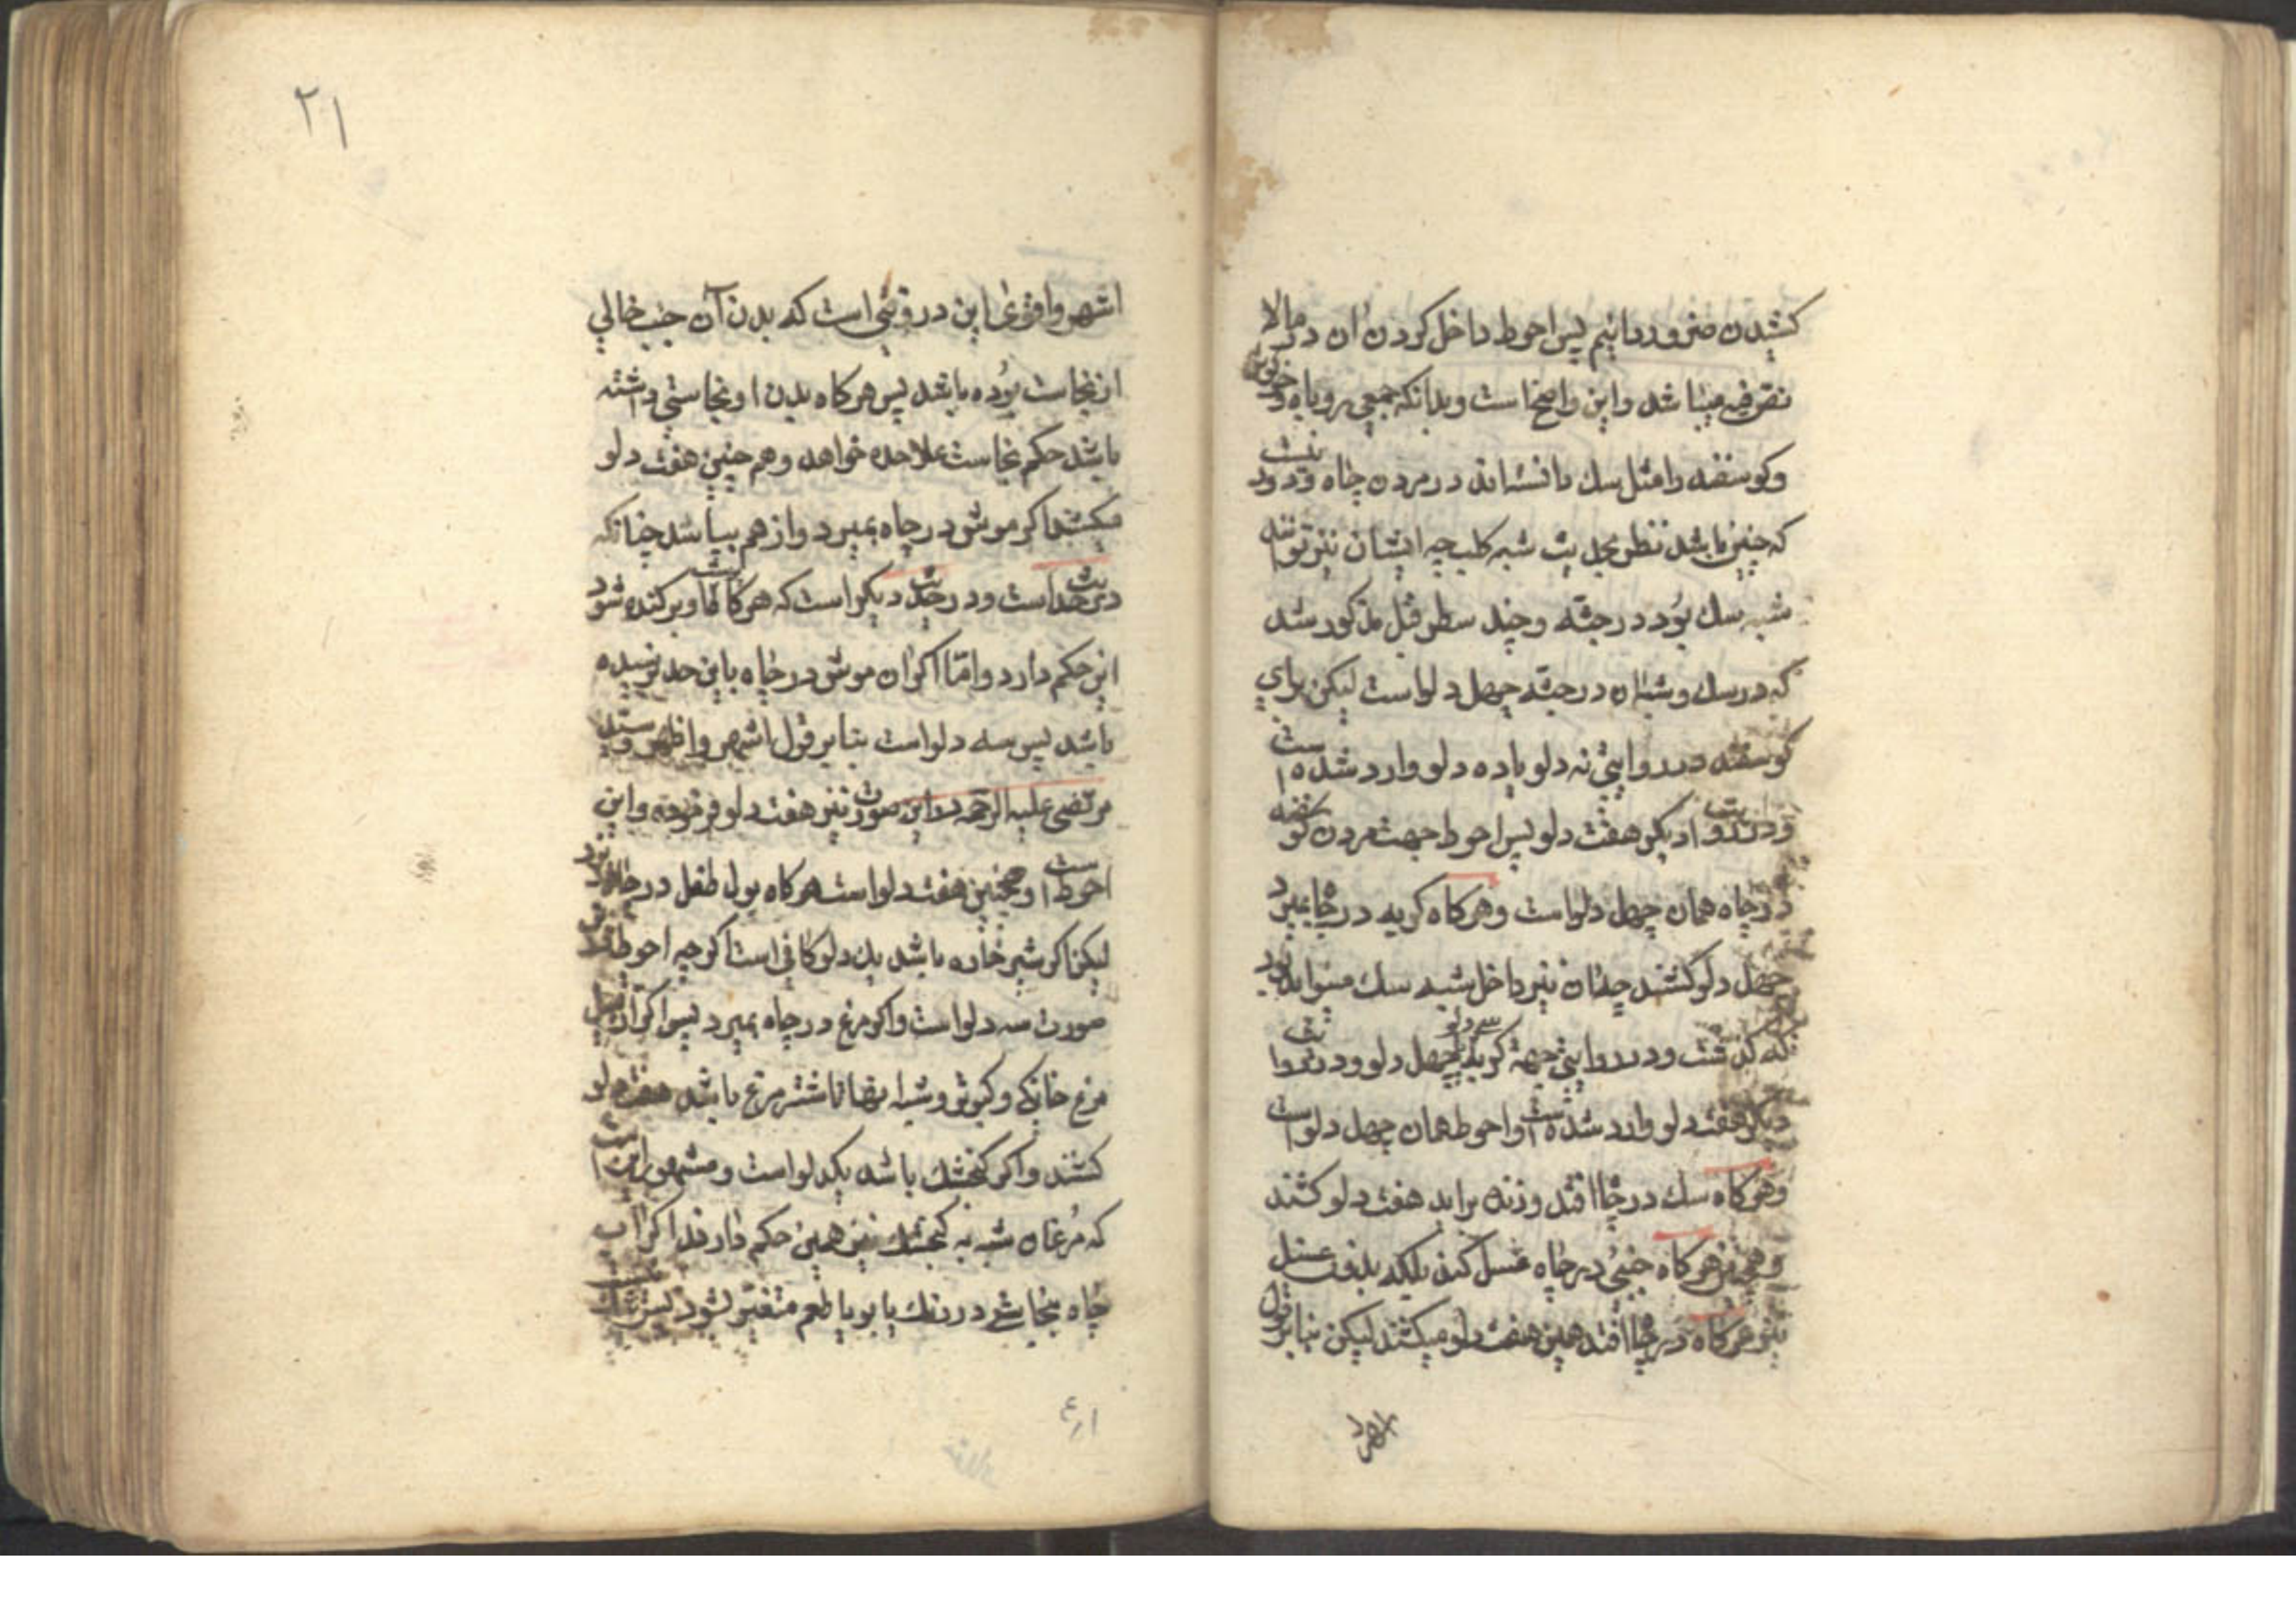 کشیدن ضرور دانیم پس احوط داخل کردن ان در مالا
نص فیه میباشد و این واضح است و بدانکه جمعی روباه و خرکوش
و کوسفند را مثل سك دانسته اند در مردن چاه و در حدیث
که چنین باشد نظر بحدیث شبه کلب چه ایشان نیز توانند
شبیه سك بود در جثه و چند سطر قبل مذکور شد
که در سك و شبه ان در جثه چهل دلو است لیکن برای
کوسفند در روایتی نه دلو یا ده دلو وارد شده است
و در روایت دیکر هفت دلو پس احوط جهت مردن کوسفند
در چاه همان چهل دلو است و هر کاه کربه در چاه بمیرد
چهل دلو کشند چه ان نیز داخل شبیه سك میتواند بود
که کذشت و در روایتی جهة کربه سی دلو یا چهل دلو و در روایت
دیکر هفت دلو وارد شده است و احوط همان چهل دلو است
و هر کاه سك در چاه افتد و زنده براید هفت دلو کشند
و همچنین هر کاه جنبی در چاه غسل کند بلکه بدون غسل
نیز هر کاه در چاه افتد همین هفت دلو میکشند لیکن بنا بر قول
اشهر
۲۱
اشهر و اقوی این در وقتی است که بدن آن جنب خالی
از نجاست بوده باشد پس هر کاه بدن او نجاستی داشته
باشد حکم نجاست علاحده خواهد و هم چنین هفت دلو
میکشند اکر موش در چاه بمیرد و از هم بپاشد چنانکه
در حدیث است و در حدیث دیکر است که هر کاه باد کند
این حکم دارد و امّا اکر ان موش در چاه باین حد نرسیده
باشد پس سه دلو است بنا بر قول اشهر و اظهر و سید
مرتضی علیه الرحمه در این صورت نیز هفت دلو فرموده و این
احوط است و همچنین هفت دلو است هر کاه بول طفل در چاه
لیکن اکر شیر خاره باشد یك دلو کافی است اکر چه احوط
صورت سه دلو است و اکر مرغ در چاه بمیرد پس اکر از قبیل
مرغ خانکی و کبوتر و شبه اینها تا شتر مرغ باشد هفت دلو
کشند و اکر کنجشك باشد یکدلو است و مشهور این است
که مرغان شبه به کنجشك نیز همین حکم دارند اکر اب
چاه بنجاستی در رنك یا بو یا طعم متغیّر شود